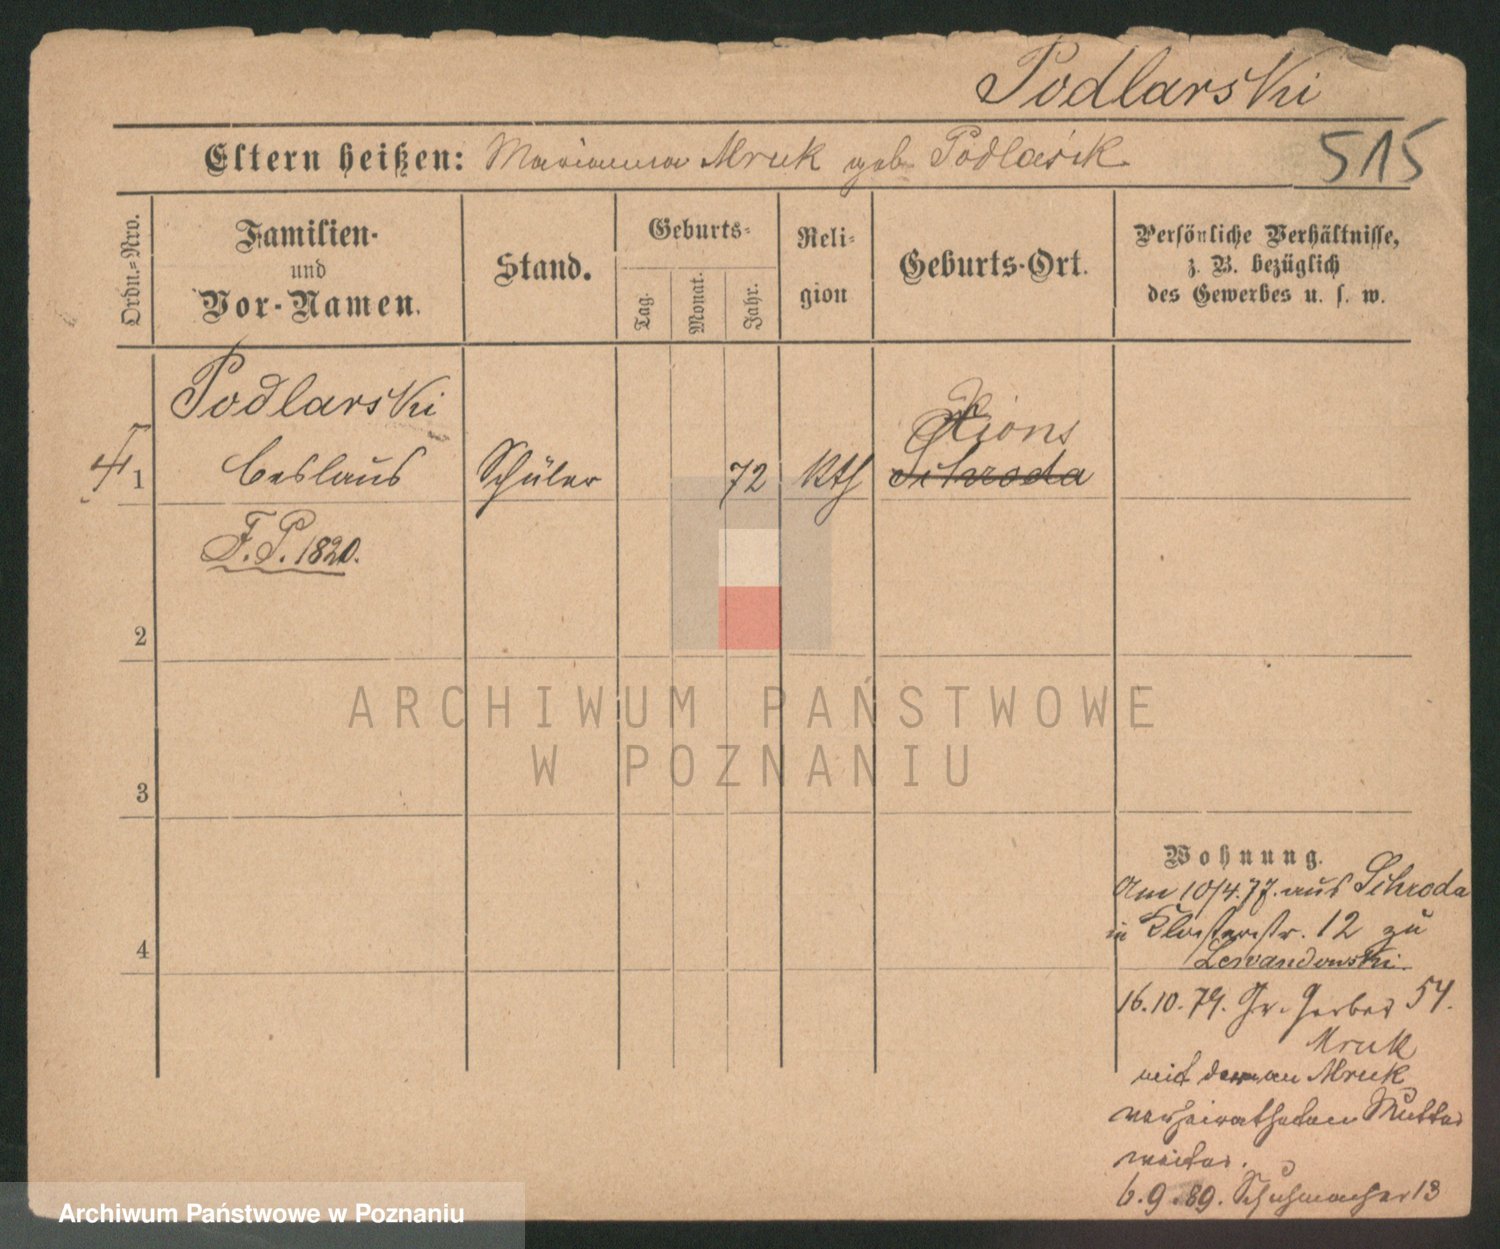 Podlarski
515
Eltern heißen: Marianna Mruk geb Podlasik
Ordn.-Nro.
Familien-
und
Vor-Namen.
Stand.
Geburts-
Tag.
Monat.
Jahr.
Reli-
gion
Geburts-Ort.
Persönliche Verhältnisse,
z. B. bezüglich
des Gewerbes u. s. w.
Podlarski
1 Ceslaus Schüler 72 Kth Schroda
Xions
F. P. 1820.
2
3
4
Wohnung.
Am 10/4.77. aus Schroda
in Klosterstr. 12 zu
Lewandowski.
16.10.79. Gr. Gerber 54.
Mruk
mit dem an Mruk
verheiratheten Mutter
weiter.
6.9.89. Schuhmacher 13
ARCHIWUM PAŃSTWOWE
W POZNANIU
Archiwum Państwowe w Poznaniu